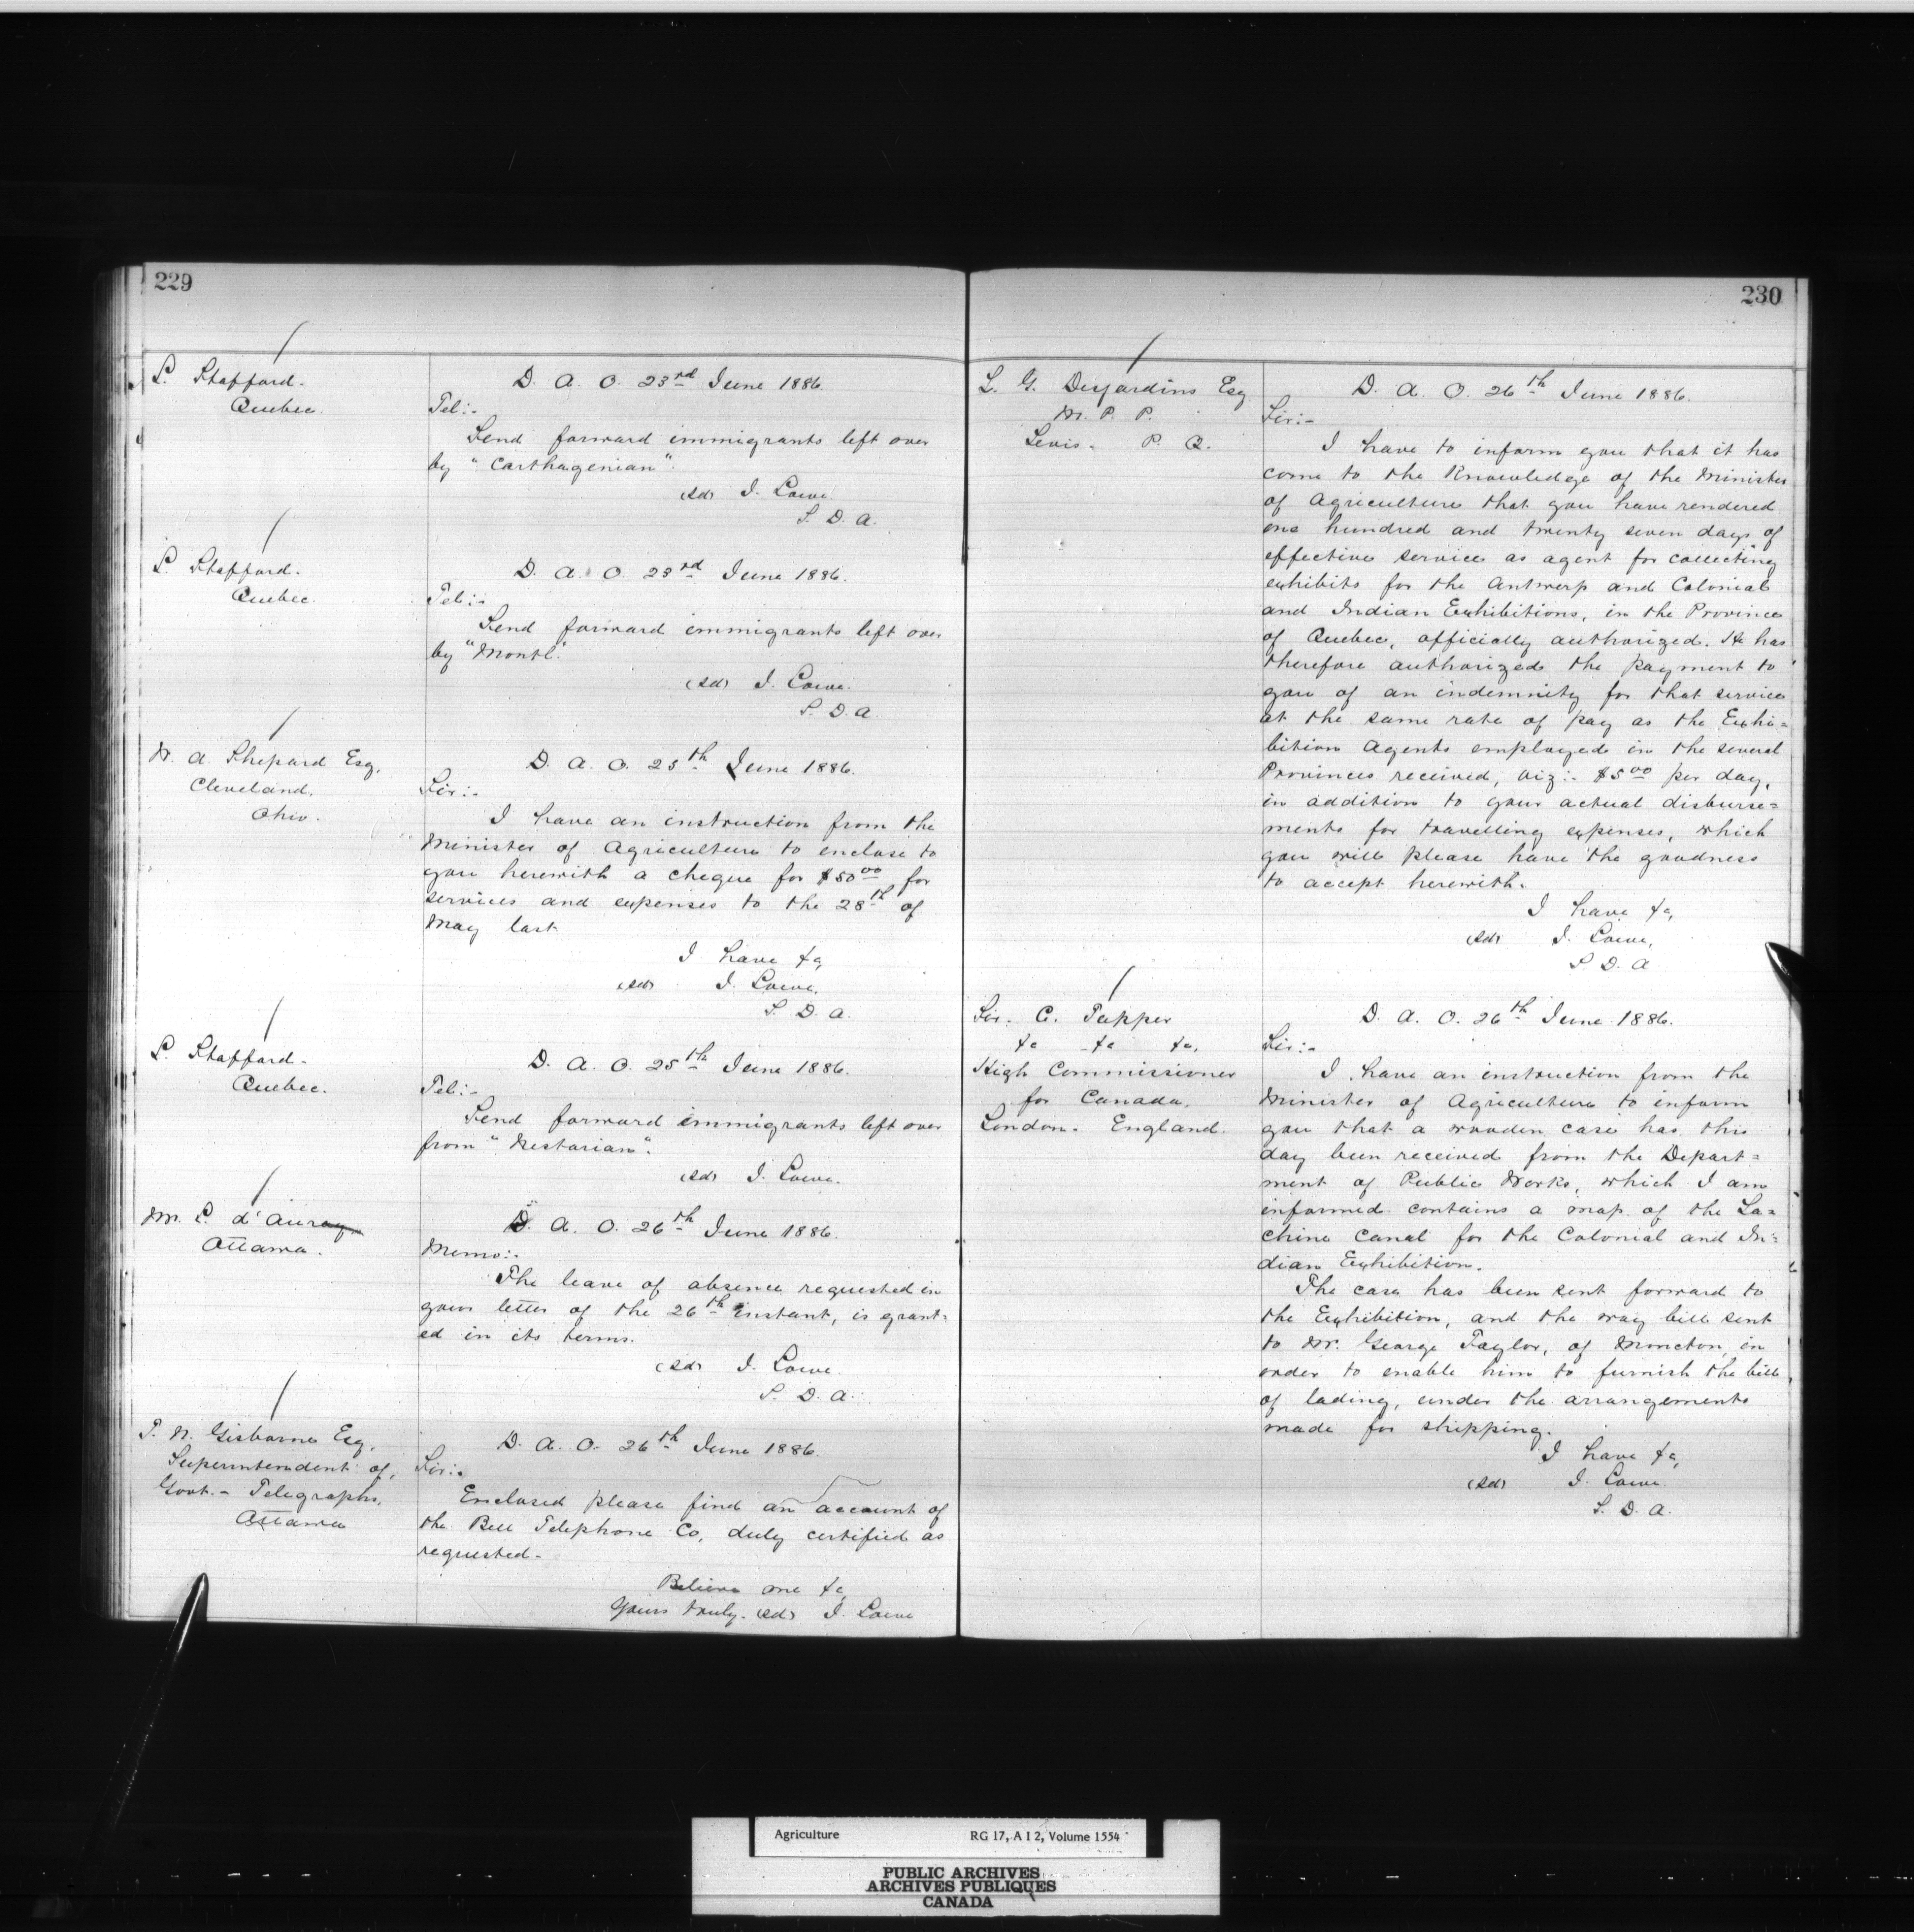 229
L. Stafford.
Quebec.
D. A. O. 23rd June 1886.
Tel:-
Send forward immigrants left over
by "Carthagenian".
(sd) J. Lowe.
S. D. A.
L. Stafford.
Quebec.
D. A. O. 23rd June 1886.
Tel:-
Send forward immigrants left over
by "Montl".
(sd) J. Lowe.
S. D. A.
W. A. Shepard Esq.
Cleveland.
Ohio.
D. A. O. 25th June 1886.
Sir:-
I have an instruction from the
Minister of Agriculture to enclose to
you herewith a cheque for $50 00 for
services and expenses to the 28th of
May last
I have &c,
(sd) J. Lowe,
S. D. A.
L. Stafford.
Quebec.
D. A. O. 25th June 1886.
Tel:-
Send forward immigrants left over
from "Nestorian".
(sd) J. Lowe.
M. L. d'Auray
Ottawa.
D. A. O. 26th June 1886.
Memo:-
The leave of absence requested in
your letter of the 26th instant, is grant=
ed in its terms.
(sd) J. Lowe
S. D. A.
F. N. Gisborne Esq.
Superintendent of,
Govt. - Telegraphs,
Ottawa
D. A. O. 26th June 1886.
Sir:-
Enclosed please find an account of
the Bell Telephone Co, duly certified as
requested-
Believe me &c,
Yours truly. (sd) J. Lowe
230
L. G. Desjardins Esq
M. P. P.
Levis. P. Q.
D. A. O. 26th June 1886.
Sir:-
I have to inform you that it has
come to the knowledge of the Minister
of Agriculture that you have rendered
one hundred and twenty seven days of
effective service as agent for collecting
exhibits for the Antwerp and Colonial
and Indian Exhibitions, in the Province
of Quebec, officially authorized. He has
therefore authorized the payment to
you of an indemnity for that service
at the same rate of pay as the Exhi=
bition Agents employed in the several
Provinces received, viz:- $5 00 per day,
in addition to your actual disburse=
ments for travelling expenses, which
you will please have the goodness
to accept herewith.
I have &c,
(sd) J. Lowe,
S. D. A
Sir. C. Tupper
&c &c &c,
High Commissioner
for Canada.
London. England.
D. A. O. 26th June 1886.
Sir:-
I have an instruction from the
Minister of Agriculture to inform
you that a wooden case has this
day been received from the Depart=
ment of Public Works, which I am
informed contains a map of the La=
chine Canal for the Colonial and In=
dian Exhibition.
The case has been sent forward to
the Exhibition, and the way bill sent
to Mr. George Taylor, of Moncton, in
order to enable him to furnish the bill
of lading, under the arrangements
made for shipping.
I have &c,
(sd) J. Lowe
S. D. A.
Agriculture RG 17, A I 2, Volume 1554
PUBLIC ARCHIVES
ARCHIVES PUBLIQUES
CANADA